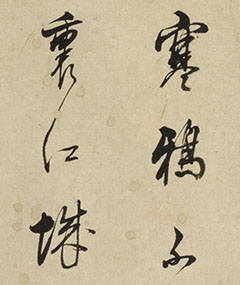 寒鴉不
裏江城